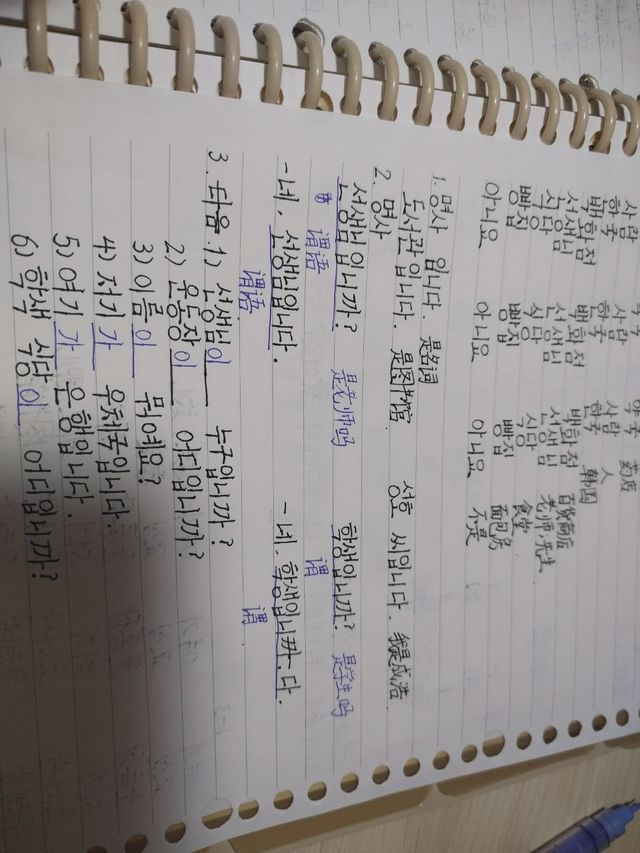 약국 약국 약국 药店
사람 사람 사람 人
한국 한국 한국 韩国
백화점 백화점 백화점 百货商店
선생님 선생님 선생님 老师,先生
식당 식당 식당 食堂
빵집 빵집 빵집 面包房
아니요 아니요 아니요 不是
1. 명사 입니다. 是名词
도서관 입니다. 是图书馆 성호 씨입니다. 我是成浩
2. 명사
선생님입니까? 是老师吗 학생입니까? 是学生吗
谓语 谓
-네, 선생님입니다. -네, 학생입니까.다.
谓语 谓
3. 다음 1) 선생님이 누구입니까?
2) 운동장이 어디입니까?
3) 이름이 뭐예요?
4) 저기가 우체국입니다.
5) 여기가 은행입니다.
6) 학생 식당이 어디입니까?